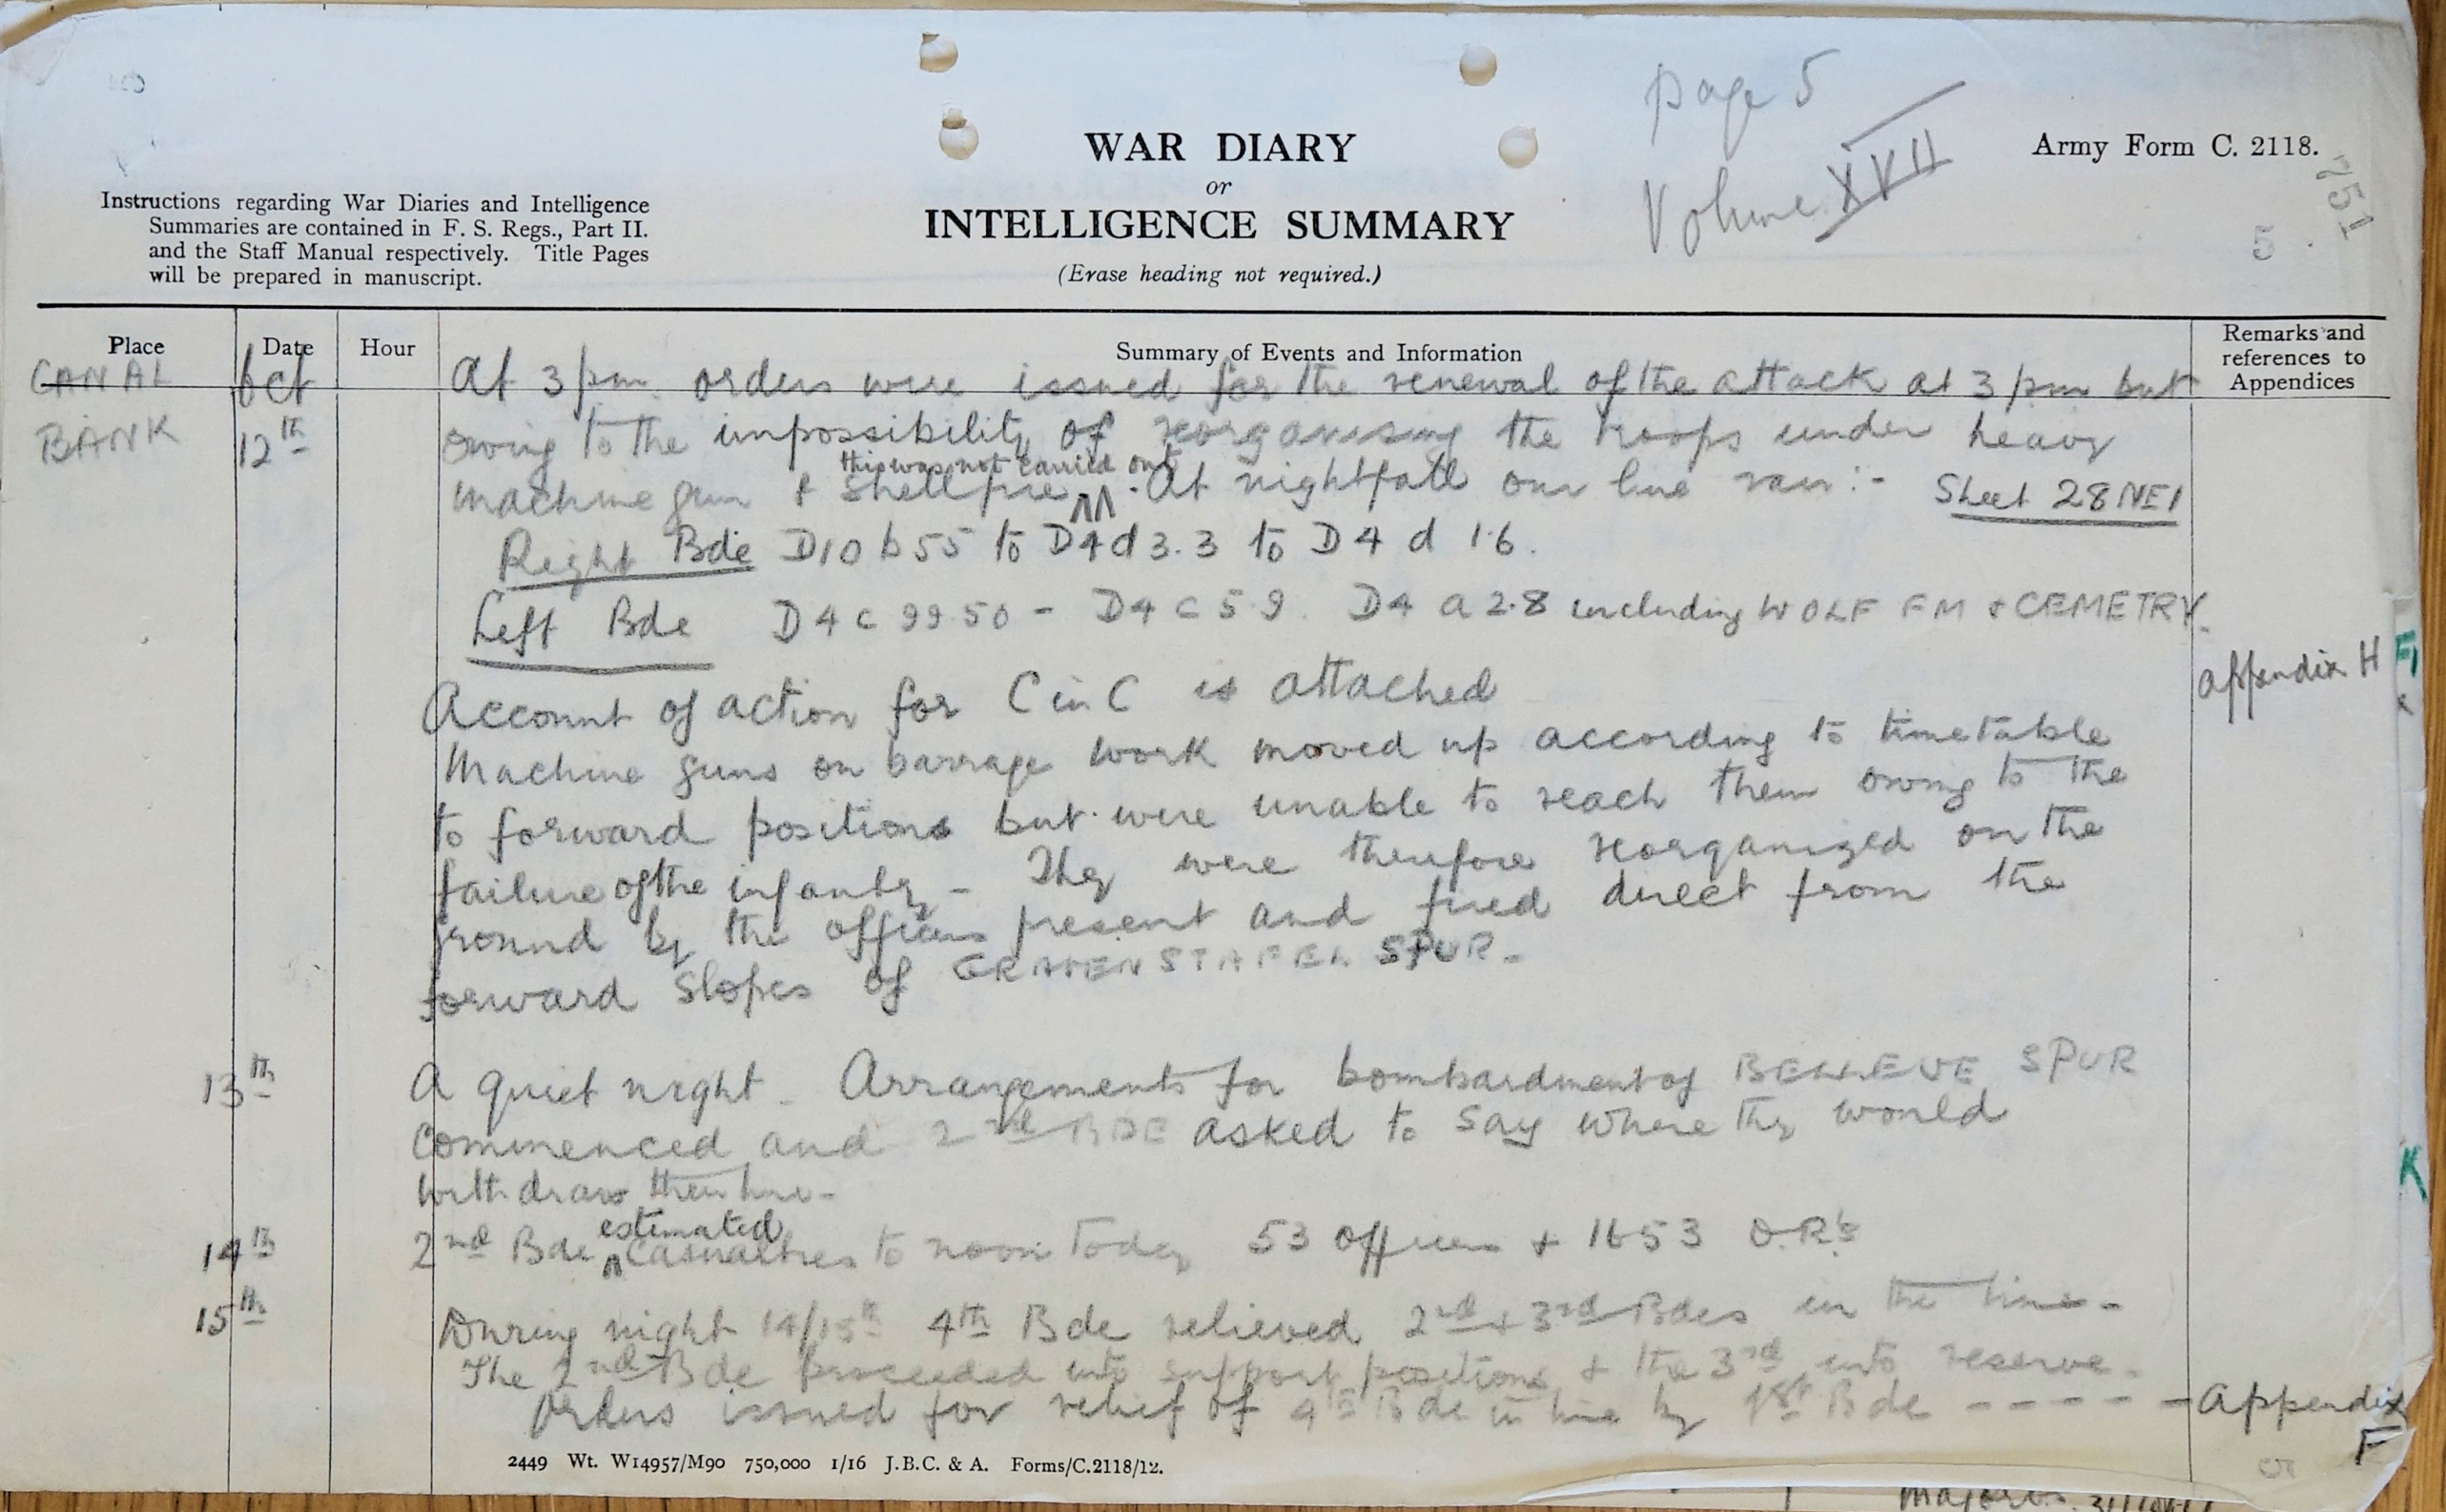 page 5
Volume XVII
Army Form C. 2118.
751
5
WAR DIARY
or
INTELLIGENCE SUMMARY
(Erase heading not required.)
Instructions regarding War Diaries and Intelligence
Summaries are contained in F. S. Regs., Part II.
and the Staff Manual respectively. Title Pages
will be prepared in manuscript.
Place Date Hour Summary of Events and Information Remarks and references to Appendices
CANAL Oct At 3 pm orders were issued for the renewal of the attack at 3 pm but
BANK 12th owing to the impossibility of reorganising the troops under heavy
this was not carried out
machine gun & shell fire . At nightfall our line ran :- Sheet 28 NE1
Right Bde D10 b 55 to D4 d 3.3 to D 4 d 1.6.
Left Bde D 4 c 99 50 - D4 c 5 9. D4 a 2.8 including WOLF FM & CEMETRY.
Account of action for C in C is attached appendix H
Machine guns on barrage work moved up according to timetable
to forward positions but were unable to reach them owing to the
failure of the infantry - They were therefore reorganized on the
ground by the officers present and fired direct from the
forward slopes of GRAVENSTAFEL SPUR -
13th A quiet night - Arrangements for bombardment of BELLEVUE SPUR
commenced and 2nd BDE asked to say where they would
withdraw their line -
estimated
14th 2nd Bde casualties to noon today 53 officers & 1653 O.R's
15th During night 14/15th 4th Bde relieved 2nd & 3rd Bdes in the line -
The 2nd Bde proceeded into support positions & the 3rd into reserve -
Orders issued for relief of 4th Bde in line by 1st Bde - - - - - Appendix
F
K
2449 Wt. W14957/M90 750,000 1/16 J.B.C. & A. Forms/C.2118/12.